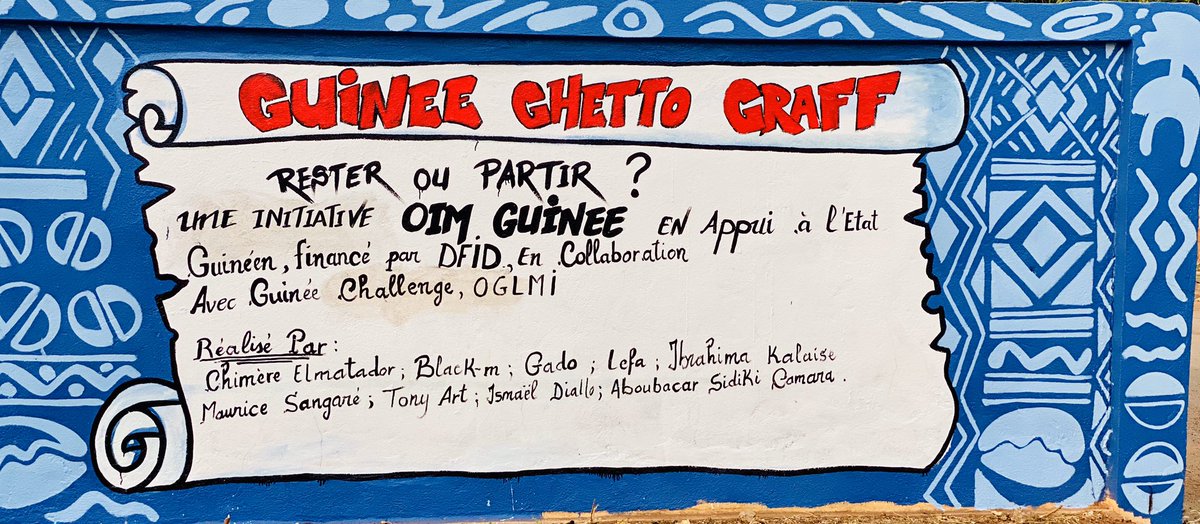 GUINEE GHETTO GRAFF
RESTER OU PARTIR ?
UNE INITIATIVE OIM GUINEE EN Appui à l'Etat
Guinéen, financé par DFID, En Collaboration
Avec Guinée Challenge, OGLMI
Réalisé Par :
Chimère Elmatador ; Black-m ; Gado ; Lefa ; Ibrahima Kalaise
Maurice Sangaré ; Tony Art ; Ismaël Diallo ; Aboubacar Sidiki Camara .